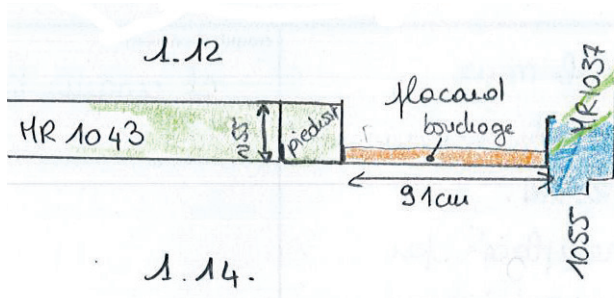 1.12
MR 1043
25
piédroit
placard
bouchage
91cm
MR1037
1055
1.14.